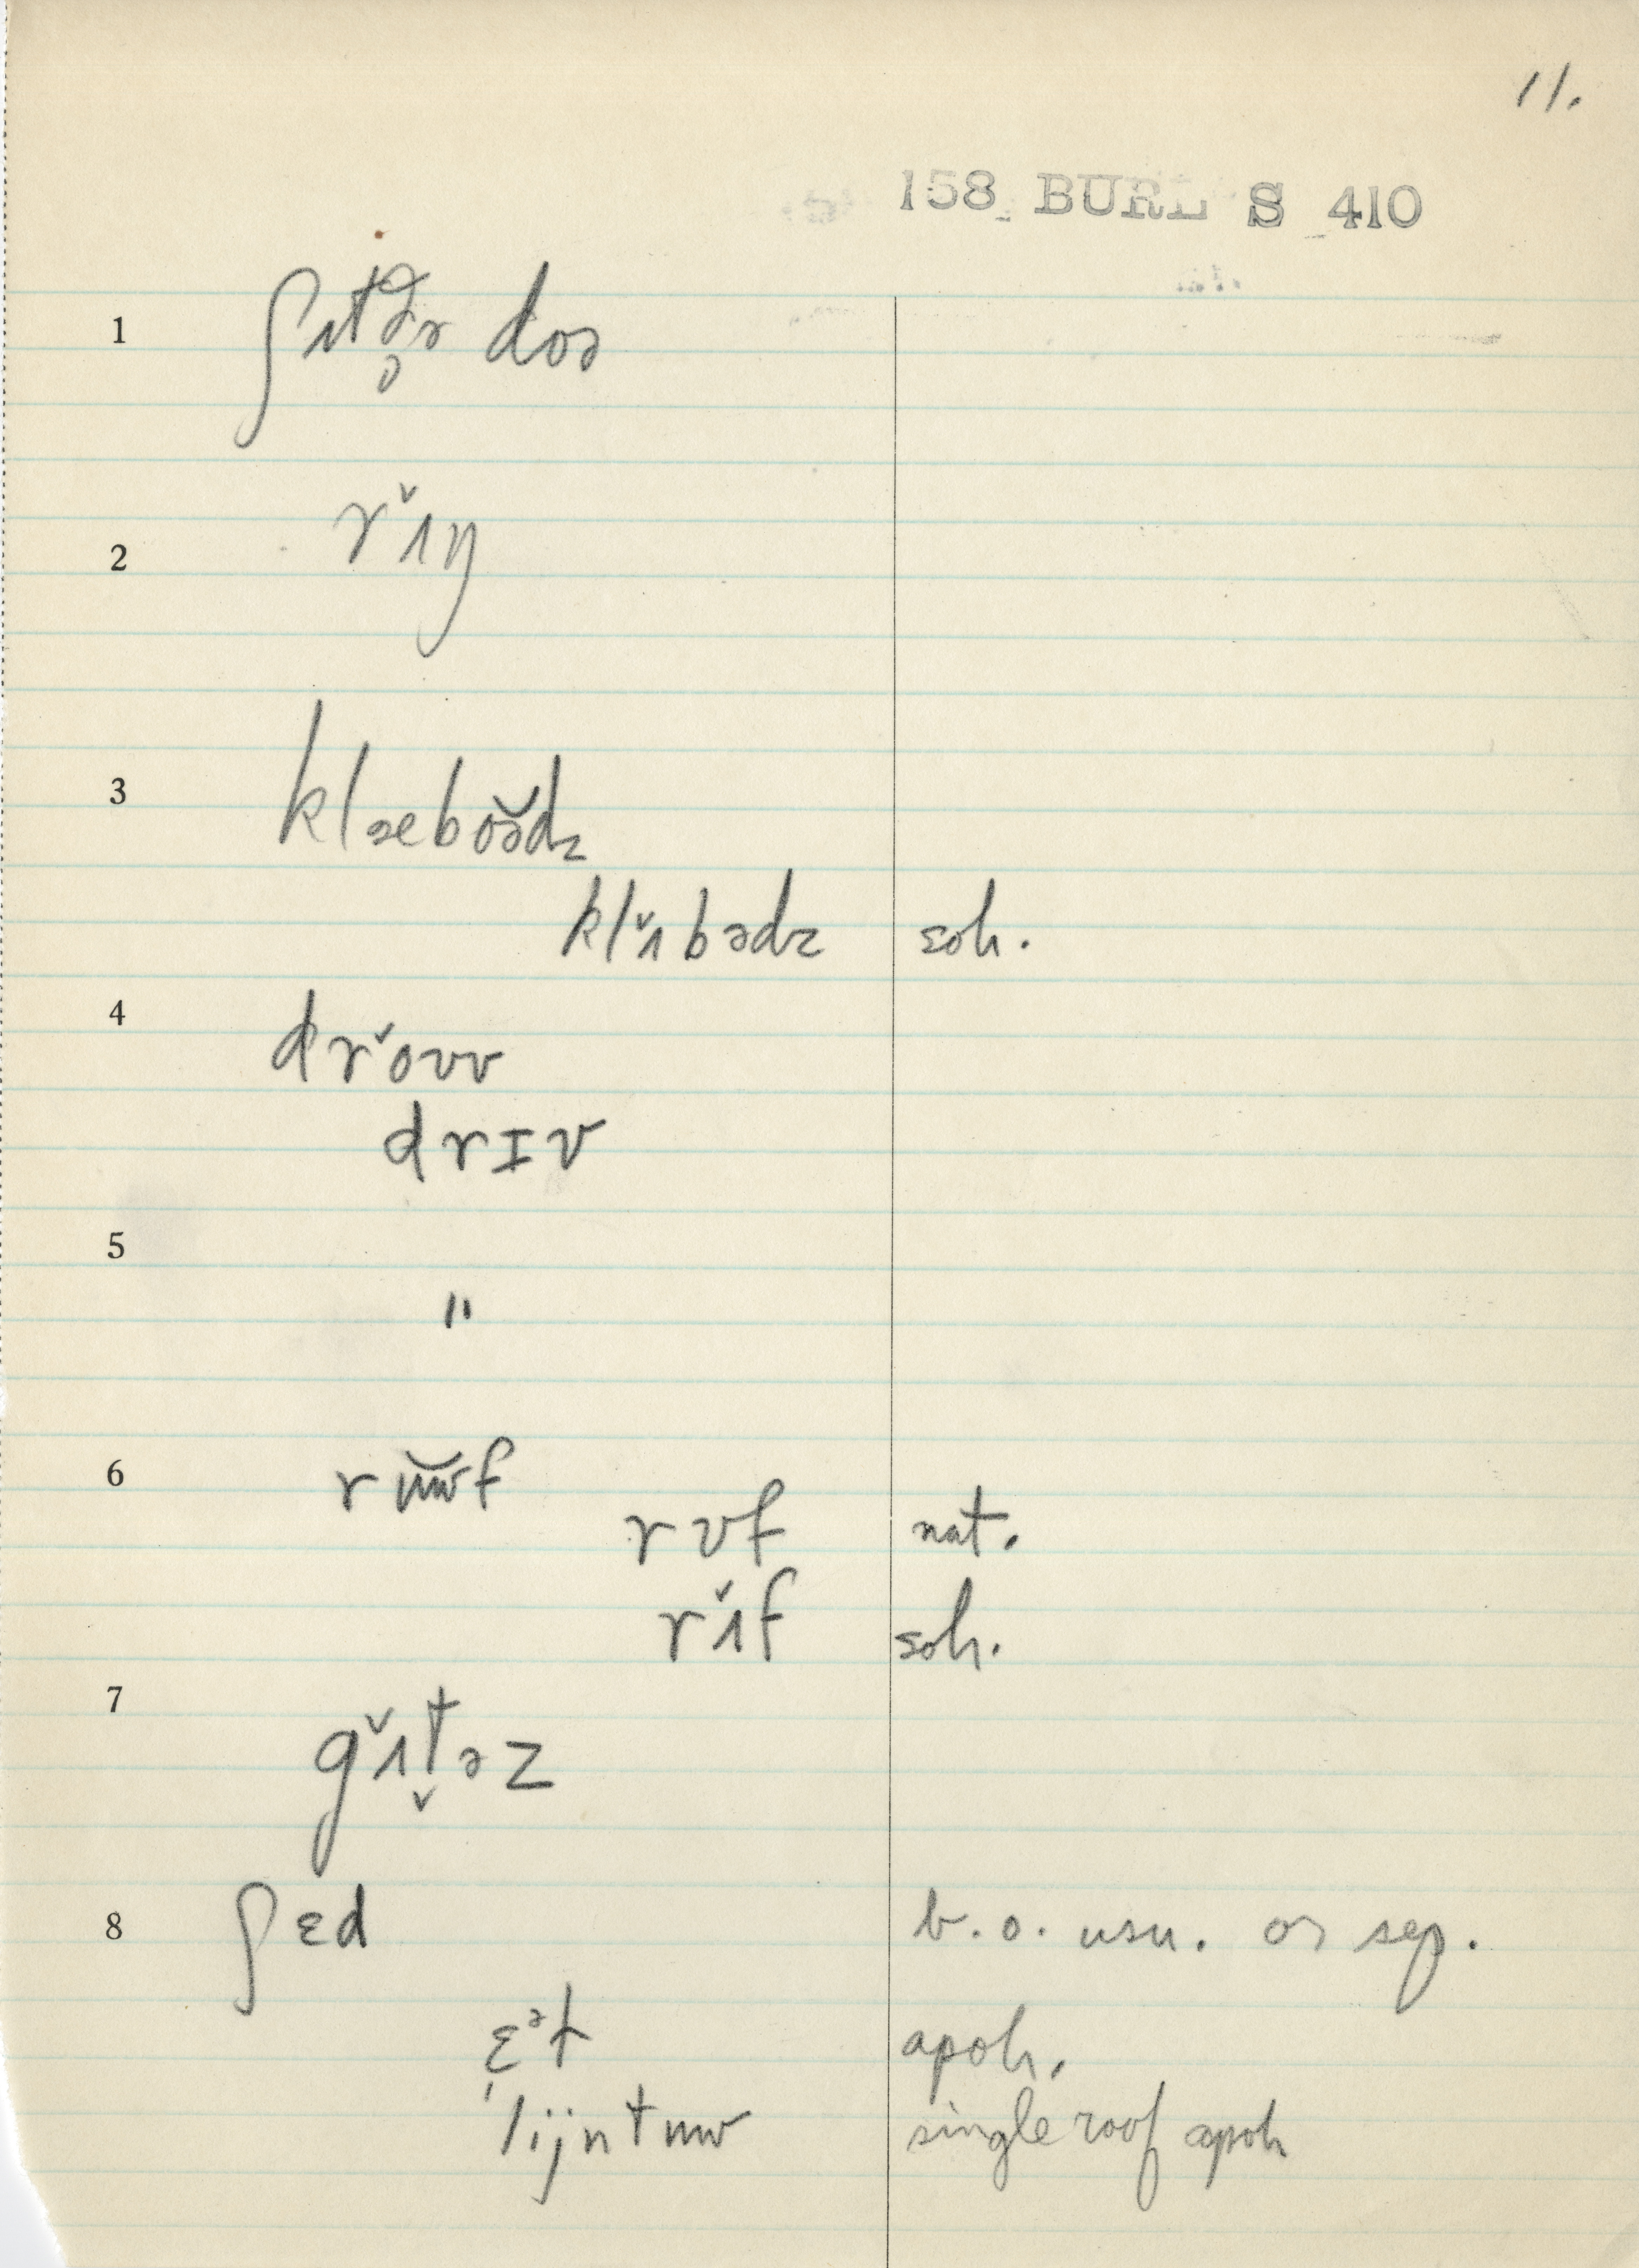 11.
158 BURL S 410
1 ʃʌtə̥r doə
2 rʌ̌ŋ
3 klæeboə̆dz
klʌ̌bədz soh.
4 drǒvv
drɪv
5 "
6 r ŭwf
rʊf nat.
rʌ̌f soh.
7 gʌ̌t̬əz
8 ʃɛd b.o. usu. or sep.
ɛᵊt apoh.
ˈlijntuw single roof apoh